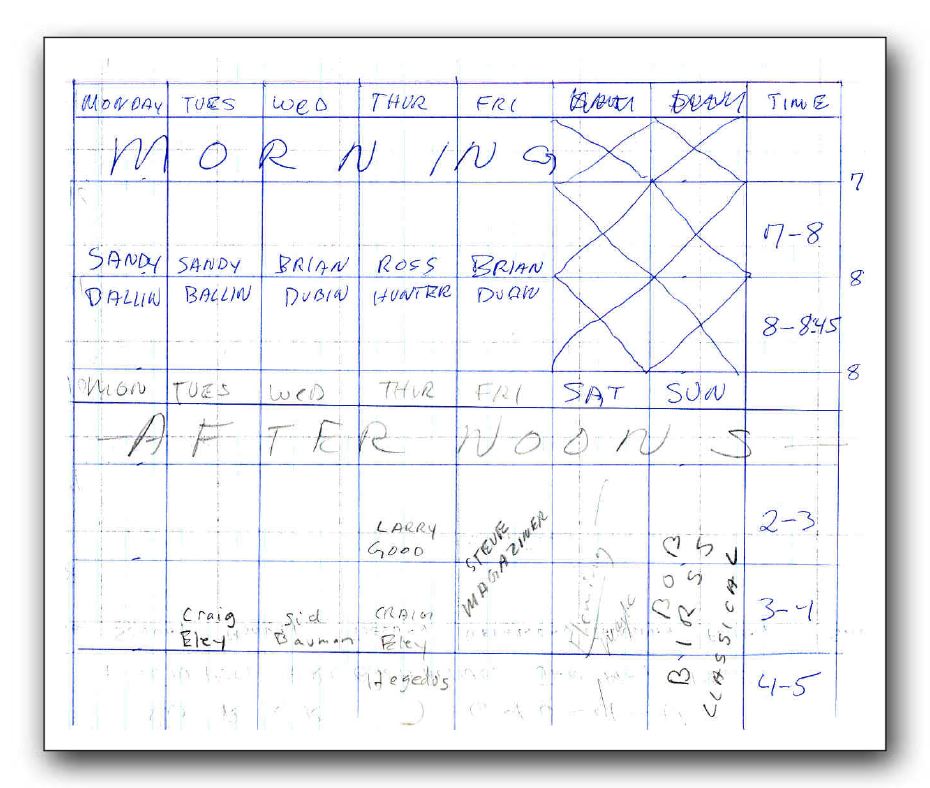 MONDAY TUES WED THUR FRI TIME
MORNING
7
7-8
SANDY SANDY BRIAN ROSS BRIAN
8
BALLIN BALLIN DUBIN HUNTER DUBIN
8-8:45
8
MON TUES WED THUR FRI SAT SUN
-AFTERNOONS-
2-3
LARRY
GOOD
STEVE
MAGAZINER
BOB
BIRSS
CLASSICAL
3-4
Craig Sid CRAIG
Eley Bauman Eley
Hegedus
4-5